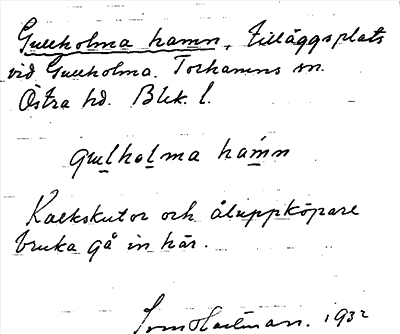 Gullholma hamn, tilläggsplats
vid Gullholma. Torhamns sn.
Östra hd. Blek. l.
gulholma hamn
Kalkskutor och åluppköpare
bruka gå in här.
Sven Hartman. 1932